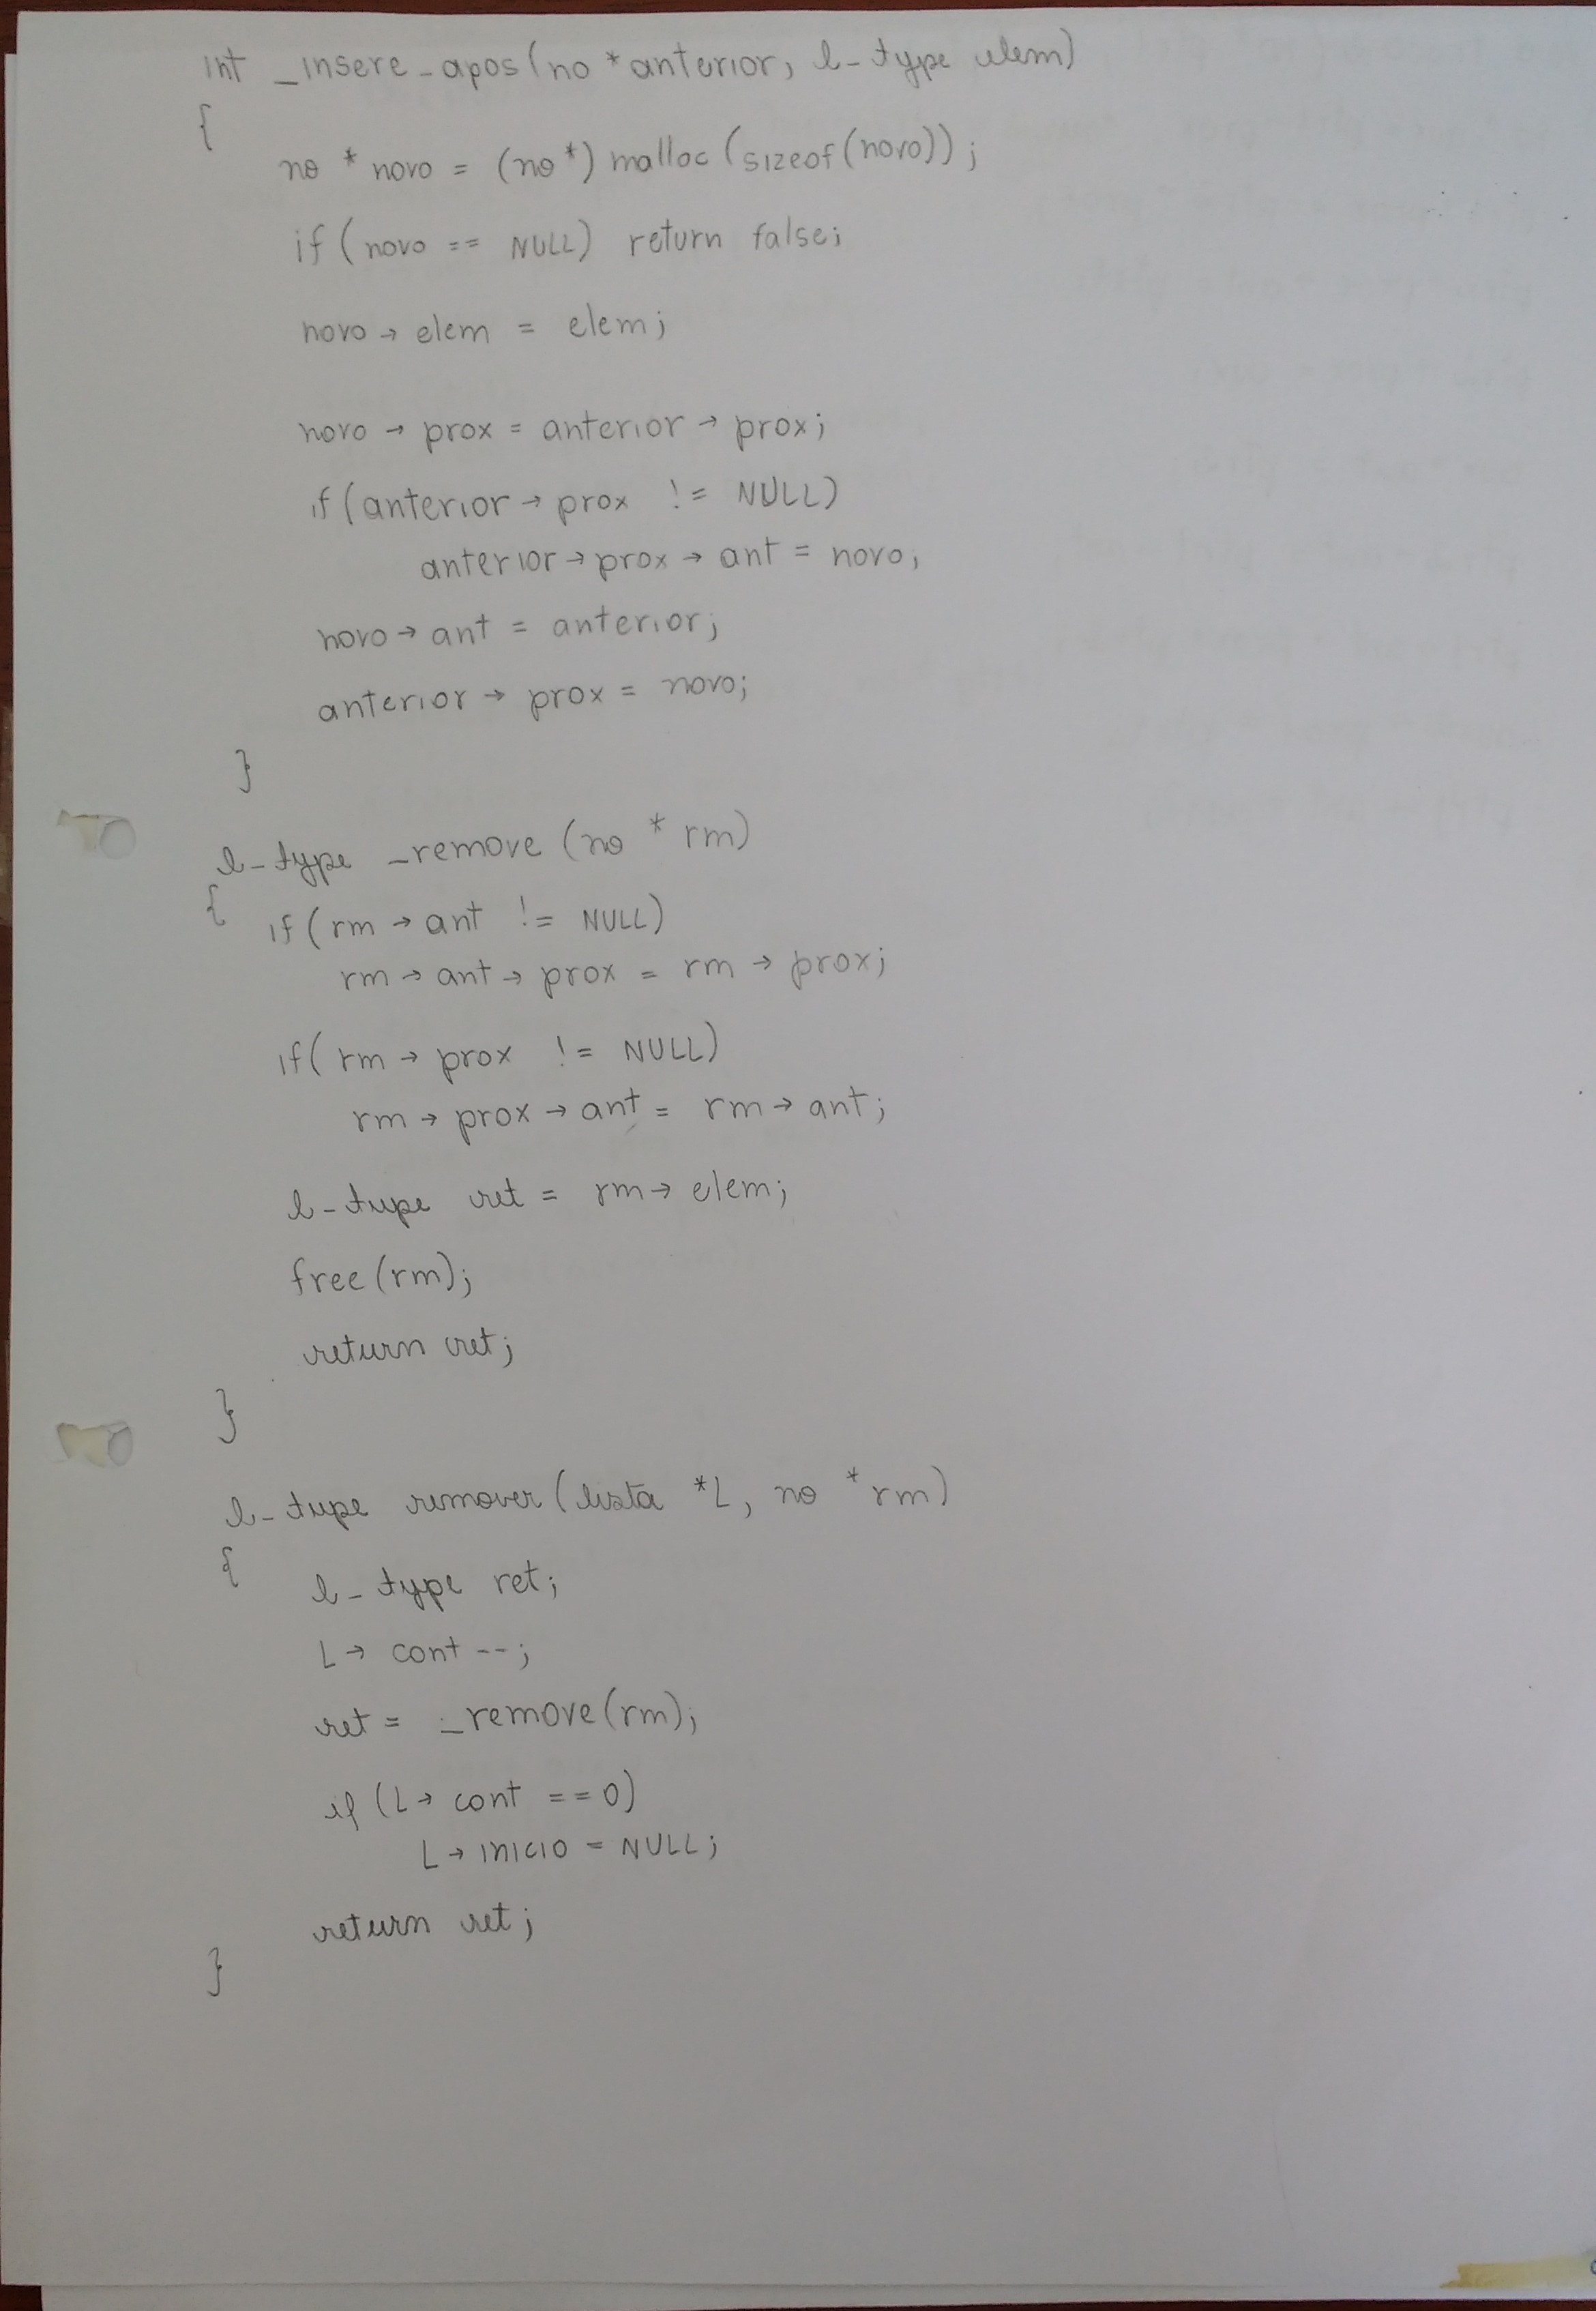 int _insere_apos(no * anterior, l_type elem)
{
no * novo = (no *) malloc(sizeof(novo));
if(novo == NULL) return false;
novo → elem = elem;
novo → prox = anterior → prox;
if(anterior → prox != NULL)
anterior → prox → ant = novo;
novo → ant = anterior;
anterior → prox = novo;
}
l_type _remove (no * rm)
{ if(rm → ant != NULL)
rm → ant → prox = rm → prox;
if(rm → prox != NULL)
rm → prox → ant = rm → ant;
l_type ret = rm → elem;
free(rm);
return ret;
}
l_type remover(lista *L, no * rm)
{ l_type ret;
L → cont --;
ret = _remove(rm);
if (L → cont == 0)
L → inicio = NULL;
return ret;
}